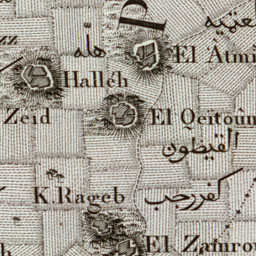 P
عتميه
هلّه
El Atmi
Halleh
Zeid
El Qeïtoun
القيطون
K. Rageb
كفر رجب
El Zamrou